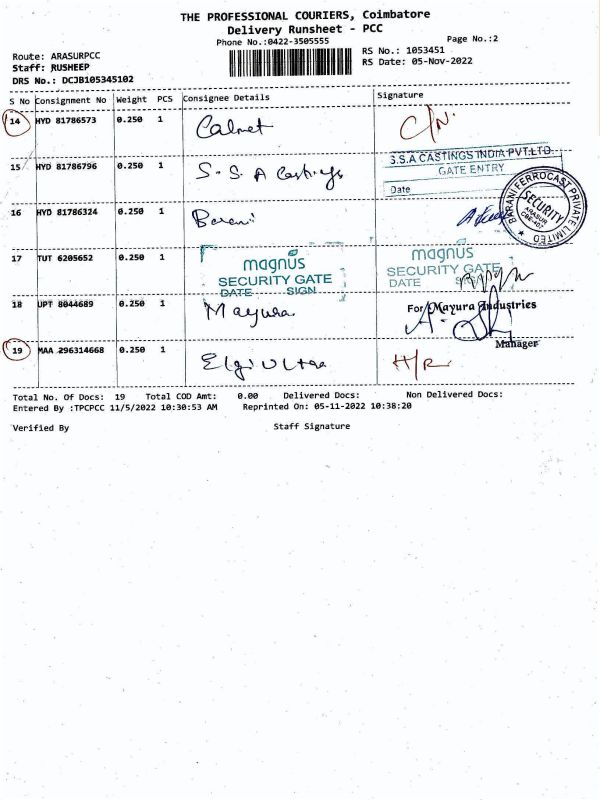 THE PROFESSIONAL COURIERS, Coimbatore
Delivery Runsheet - PCC
Phone No.:0422-3505555
Page No.:2
Route: ARASURPCC
RS No.: 1053451
Staff: RUSHEEP
RS Date: 05-Nov-2022
DRS No.: DCJB105345102
S No Consignment No Weight PCS Consignee Details Signature
14 HYD 81786573 0.250 1 Calnet C/N.
15 HYD 81786796 0.250 1 S. S. A Castings
S.S.A CASTINGS INDIA PVT.LTD.
GATE ENTRY
Date
16 HYD 81786324 0.250 1 Barani
BARANI FERROCAST PRIVATE LIMITED
SECURITY
ARASUR
CBE-407
17 TUT 6205652 0.250 1
magnus magnus
SECURITY GATE SECURITY GATE
DATE SIGN DATE SIGN
18 UPT 8044689 0.250 1 Mayura
For Mayura Industries
Manager
19 MAA 296314668 0.250 1 Elgi Ultra H/R
Total No. Of Docs: 19 Total COD Amt: 0.00 Delivered Docs: Non Delivered Docs:
Entered By :TPCPCC 11/5/2022 10:30:53 AM Reprinted On: 05-11-2022 10:38:20
Verified By Staff Signature